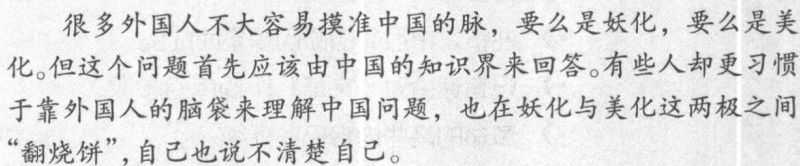 很多外国人不大容易摸准中国的脉，要么是妖化，要么是美
化。但这个问题首先应该由中国的知识界来回答。有些人却更习惯
于靠外国人的脑袋来理解中国问题，也在妖化与美化这两极之间
“翻烧饼”，自己也说不清楚自己。